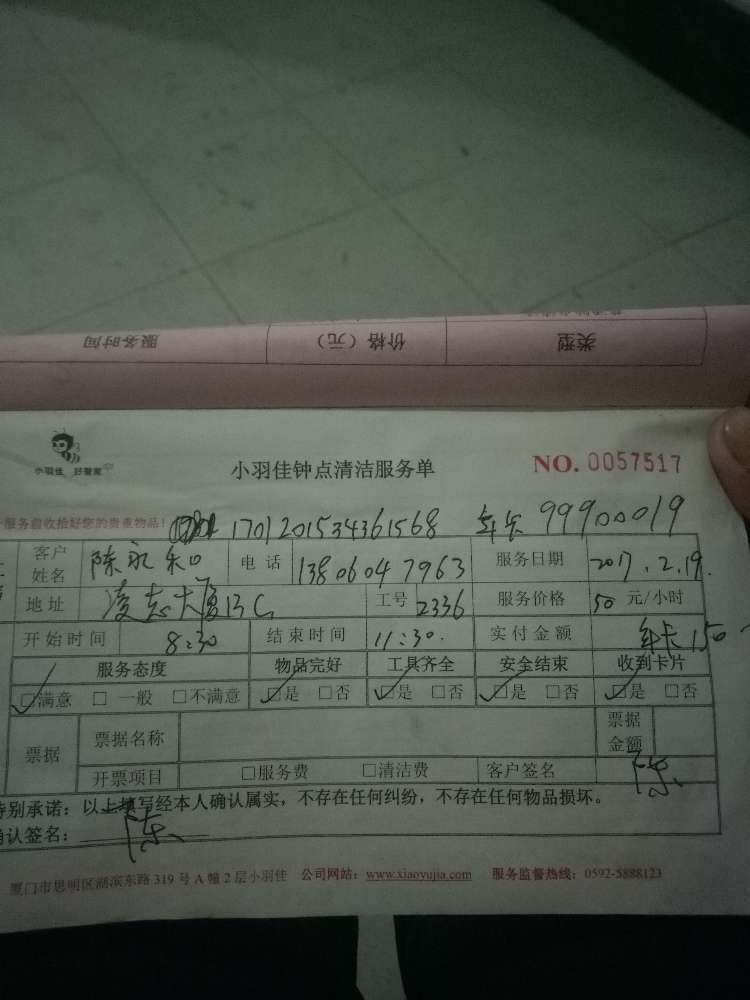 服务时间 价格（元） 类型
小羽佳 好管家
小羽佳钟点清洁服务单 NO. 0057517
服务前收拾好您的贵重物品！ 1701201534361568 年卡 99900019
客户姓名 陈永和 电话 13806047963 服务日期 2017.2.19.
地址 凌志大厦13C 工号 2336 服务价格 50 元/小时
开始时间 8:30 结束时间 11:30. 实付金额 年卡150
服务态度 物品完好 工具齐全 安全结束 收到卡片
☑满意 □ 一般 □不满意 ☑是 □否 ☑是 □否 ☑是 □否 ☑是 □否
票据 票据名称 票据金额
开票项目 □服务费 □清洁费 客户签名 陈
特别承诺：以上填写经本人确认属实，不存在任何纠纷，不存在任何物品损坏。
确认签名：陈
厦门市思明区湖滨东路 319 号 A 幢 2 层小羽佳 公司网站：www.xiaoyujia.com 服务监督热线：0592-5888123